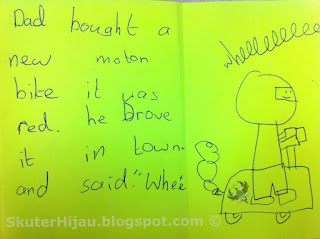 Dad bought a
new moton
bike it was
red. he Drove
it in town.
and said "Whee
wheeeeeeeee
SkuterHijau.blogspot.com ©